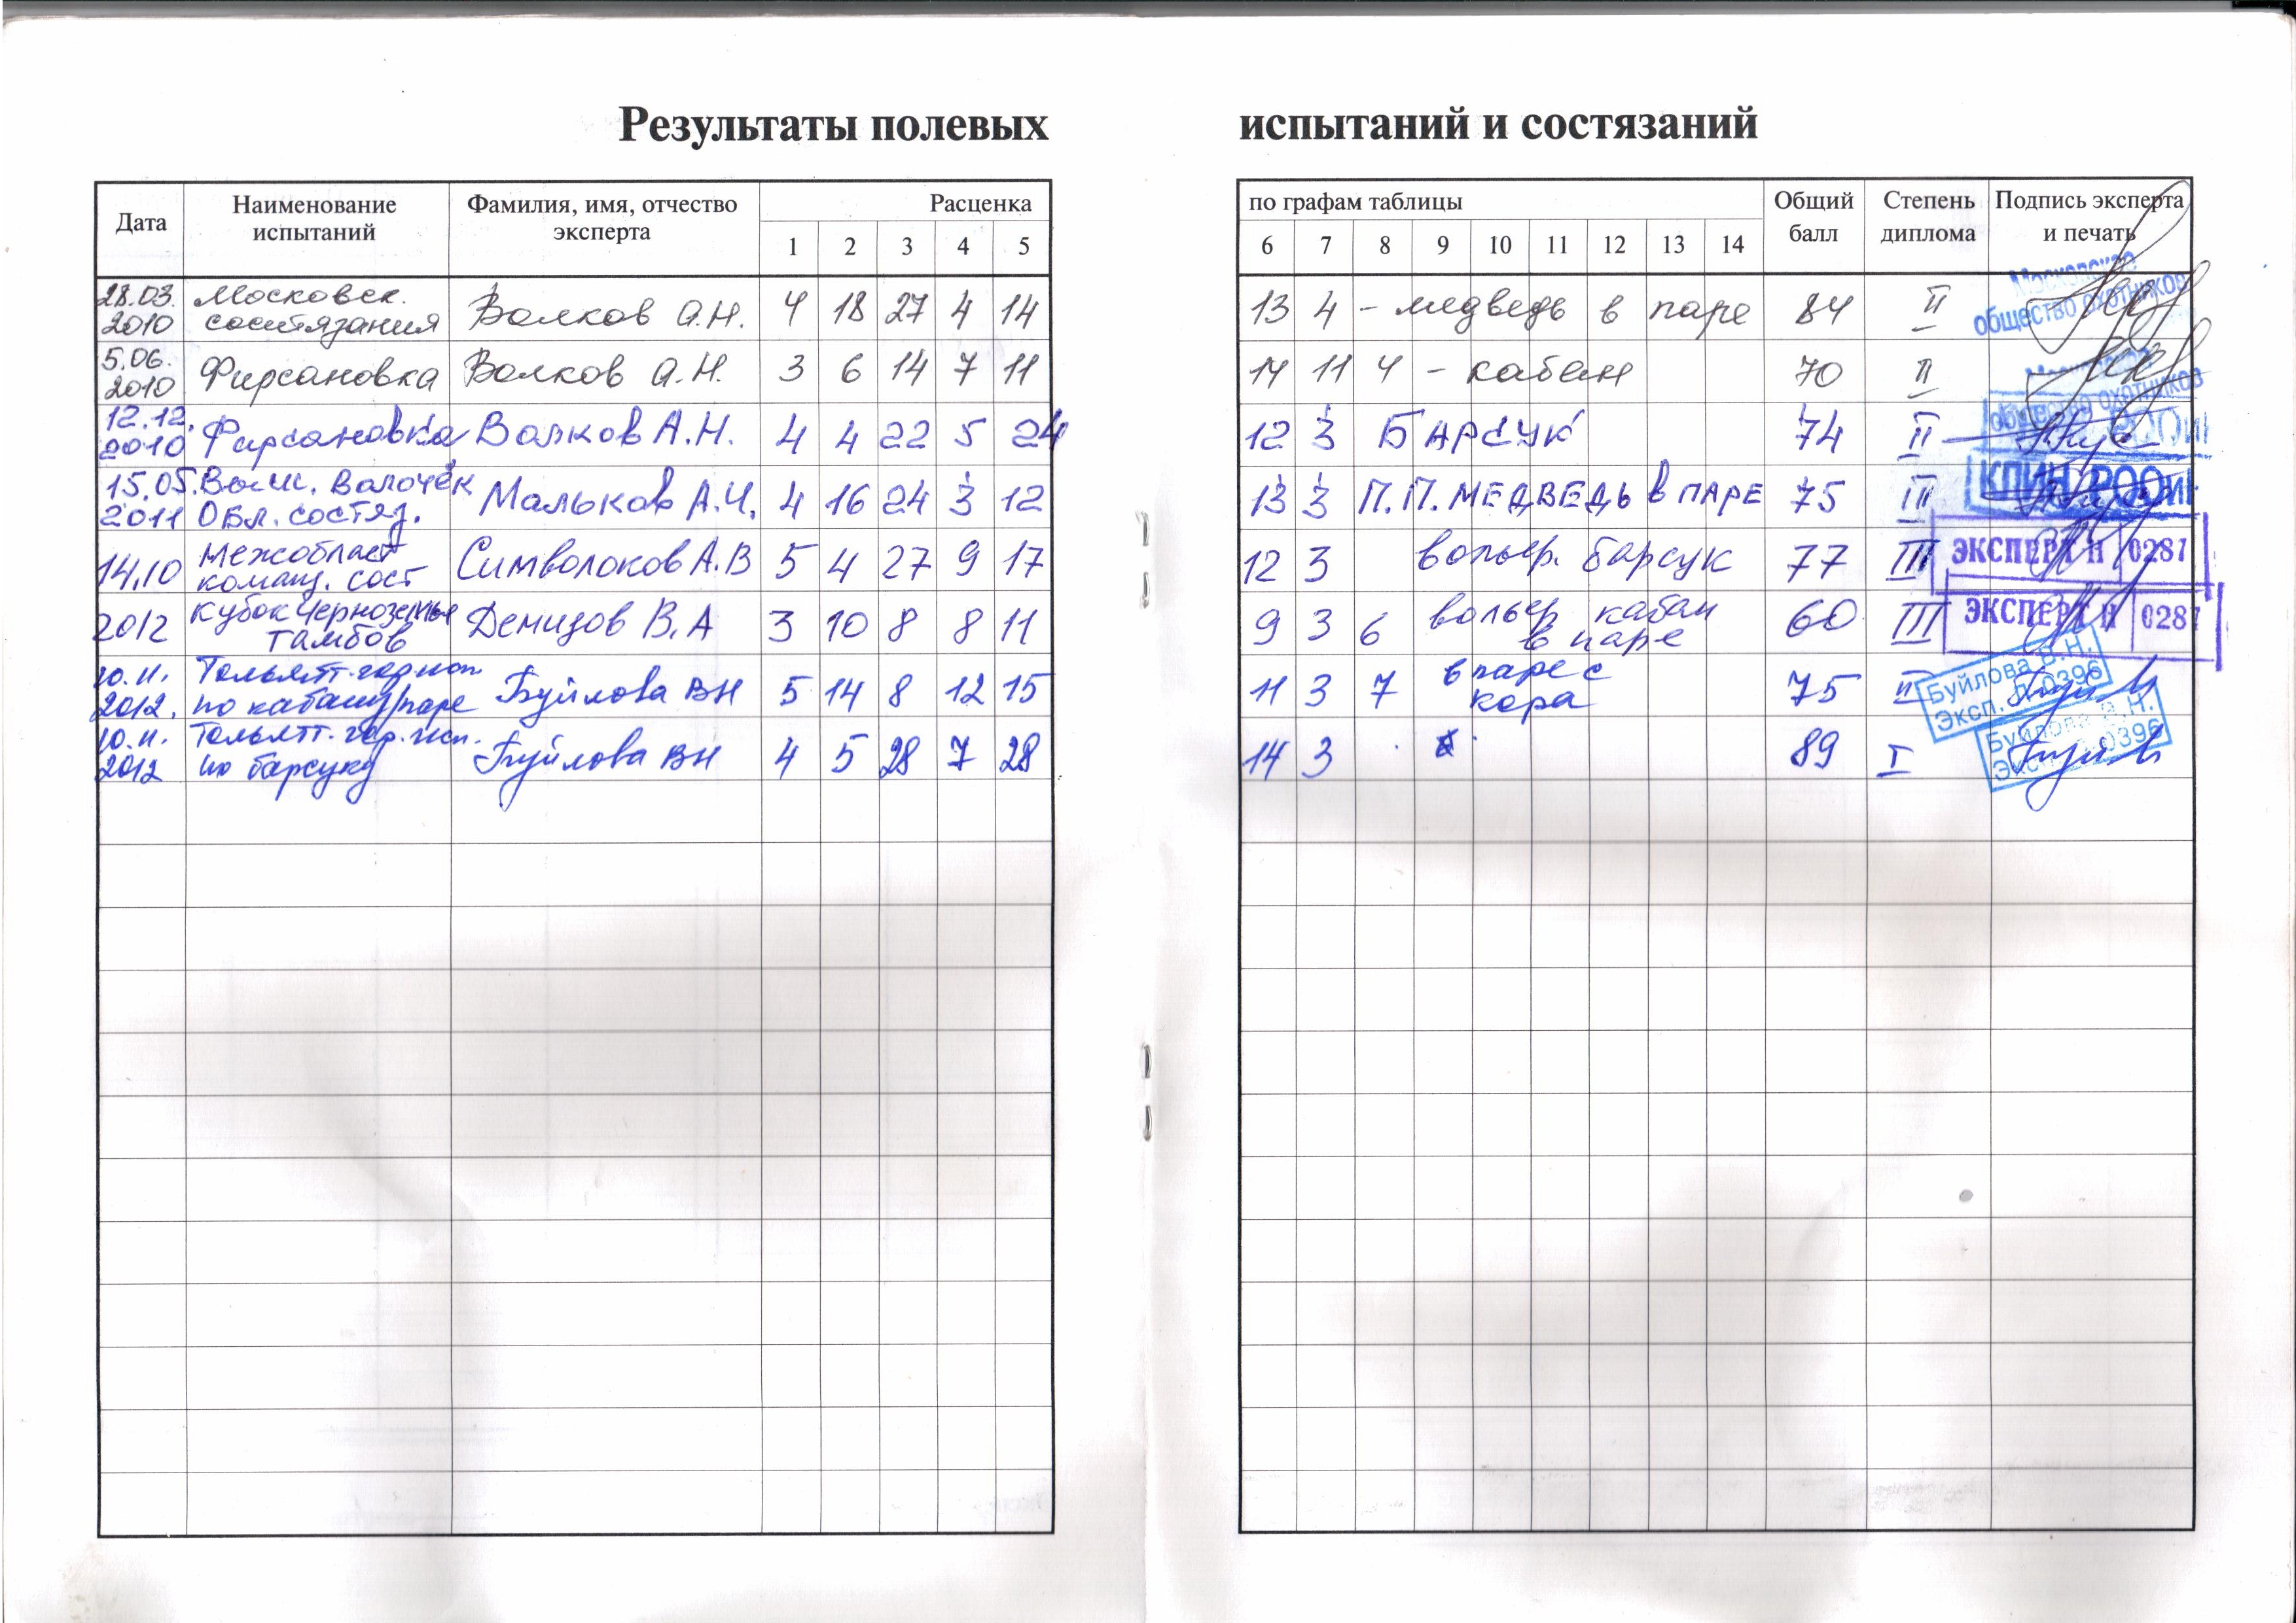 Результаты полевых испытаний и состязаний
Дата Наименование испытаний Фамилия, имя, отчество эксперта Расценка по графам таблицы Общий балл Степень диплома Подпись эксперта и печать
1 2 3 4 5 6 7 8 9 10 11 12 13 14
28.03. 2010 Московск. состязания Волков А.Н. 4 18 27 4 14 13 4 - медведь в паре 84 II
Московское общество охотников
5.06. 2010 Фирсановка Волков А.Н. 3 6 14 7 11 14 11 4 - кабан 70 II
общество охотников
12.12. 2010 Фирсановка Волков А.Н. 4 4 22 5 24 12 3 БАРСУК 74 II
15.05. 2011 Выш. Волочёк Обл. состяз. Мальков А.И. 4 16 24 3 12 13 3 П.П. МЕДВЕДЬ в ПАРЕ 75 III
КЛИН РООиР
14.10 Межобласт команд. сост Символоков А.В 5 4 27 9 17 12 3 вольер. барсук 77 III
ЭКСПЕРТ Н 0287
2012 Кубок Черноземья Тамбов Демидов В.А 3 10 8 8 11 9 3 6 вольер кабан в паре 60 III
ЭКСПЕРТ Н 0287
10.11. 2012. Тольятт. гор исп по кабану/паре Буйлова ВН 5 14 8 12 15 11 3 7 в паре с кора 75 II
Буйлова В.Н. Эксп. 0396
10.11. 2012 Тольятт. гор. исп. по барсуку Буйлова ВН 4 5 28 7 28 14 3 89 I
Буйлова В.Н. 0396